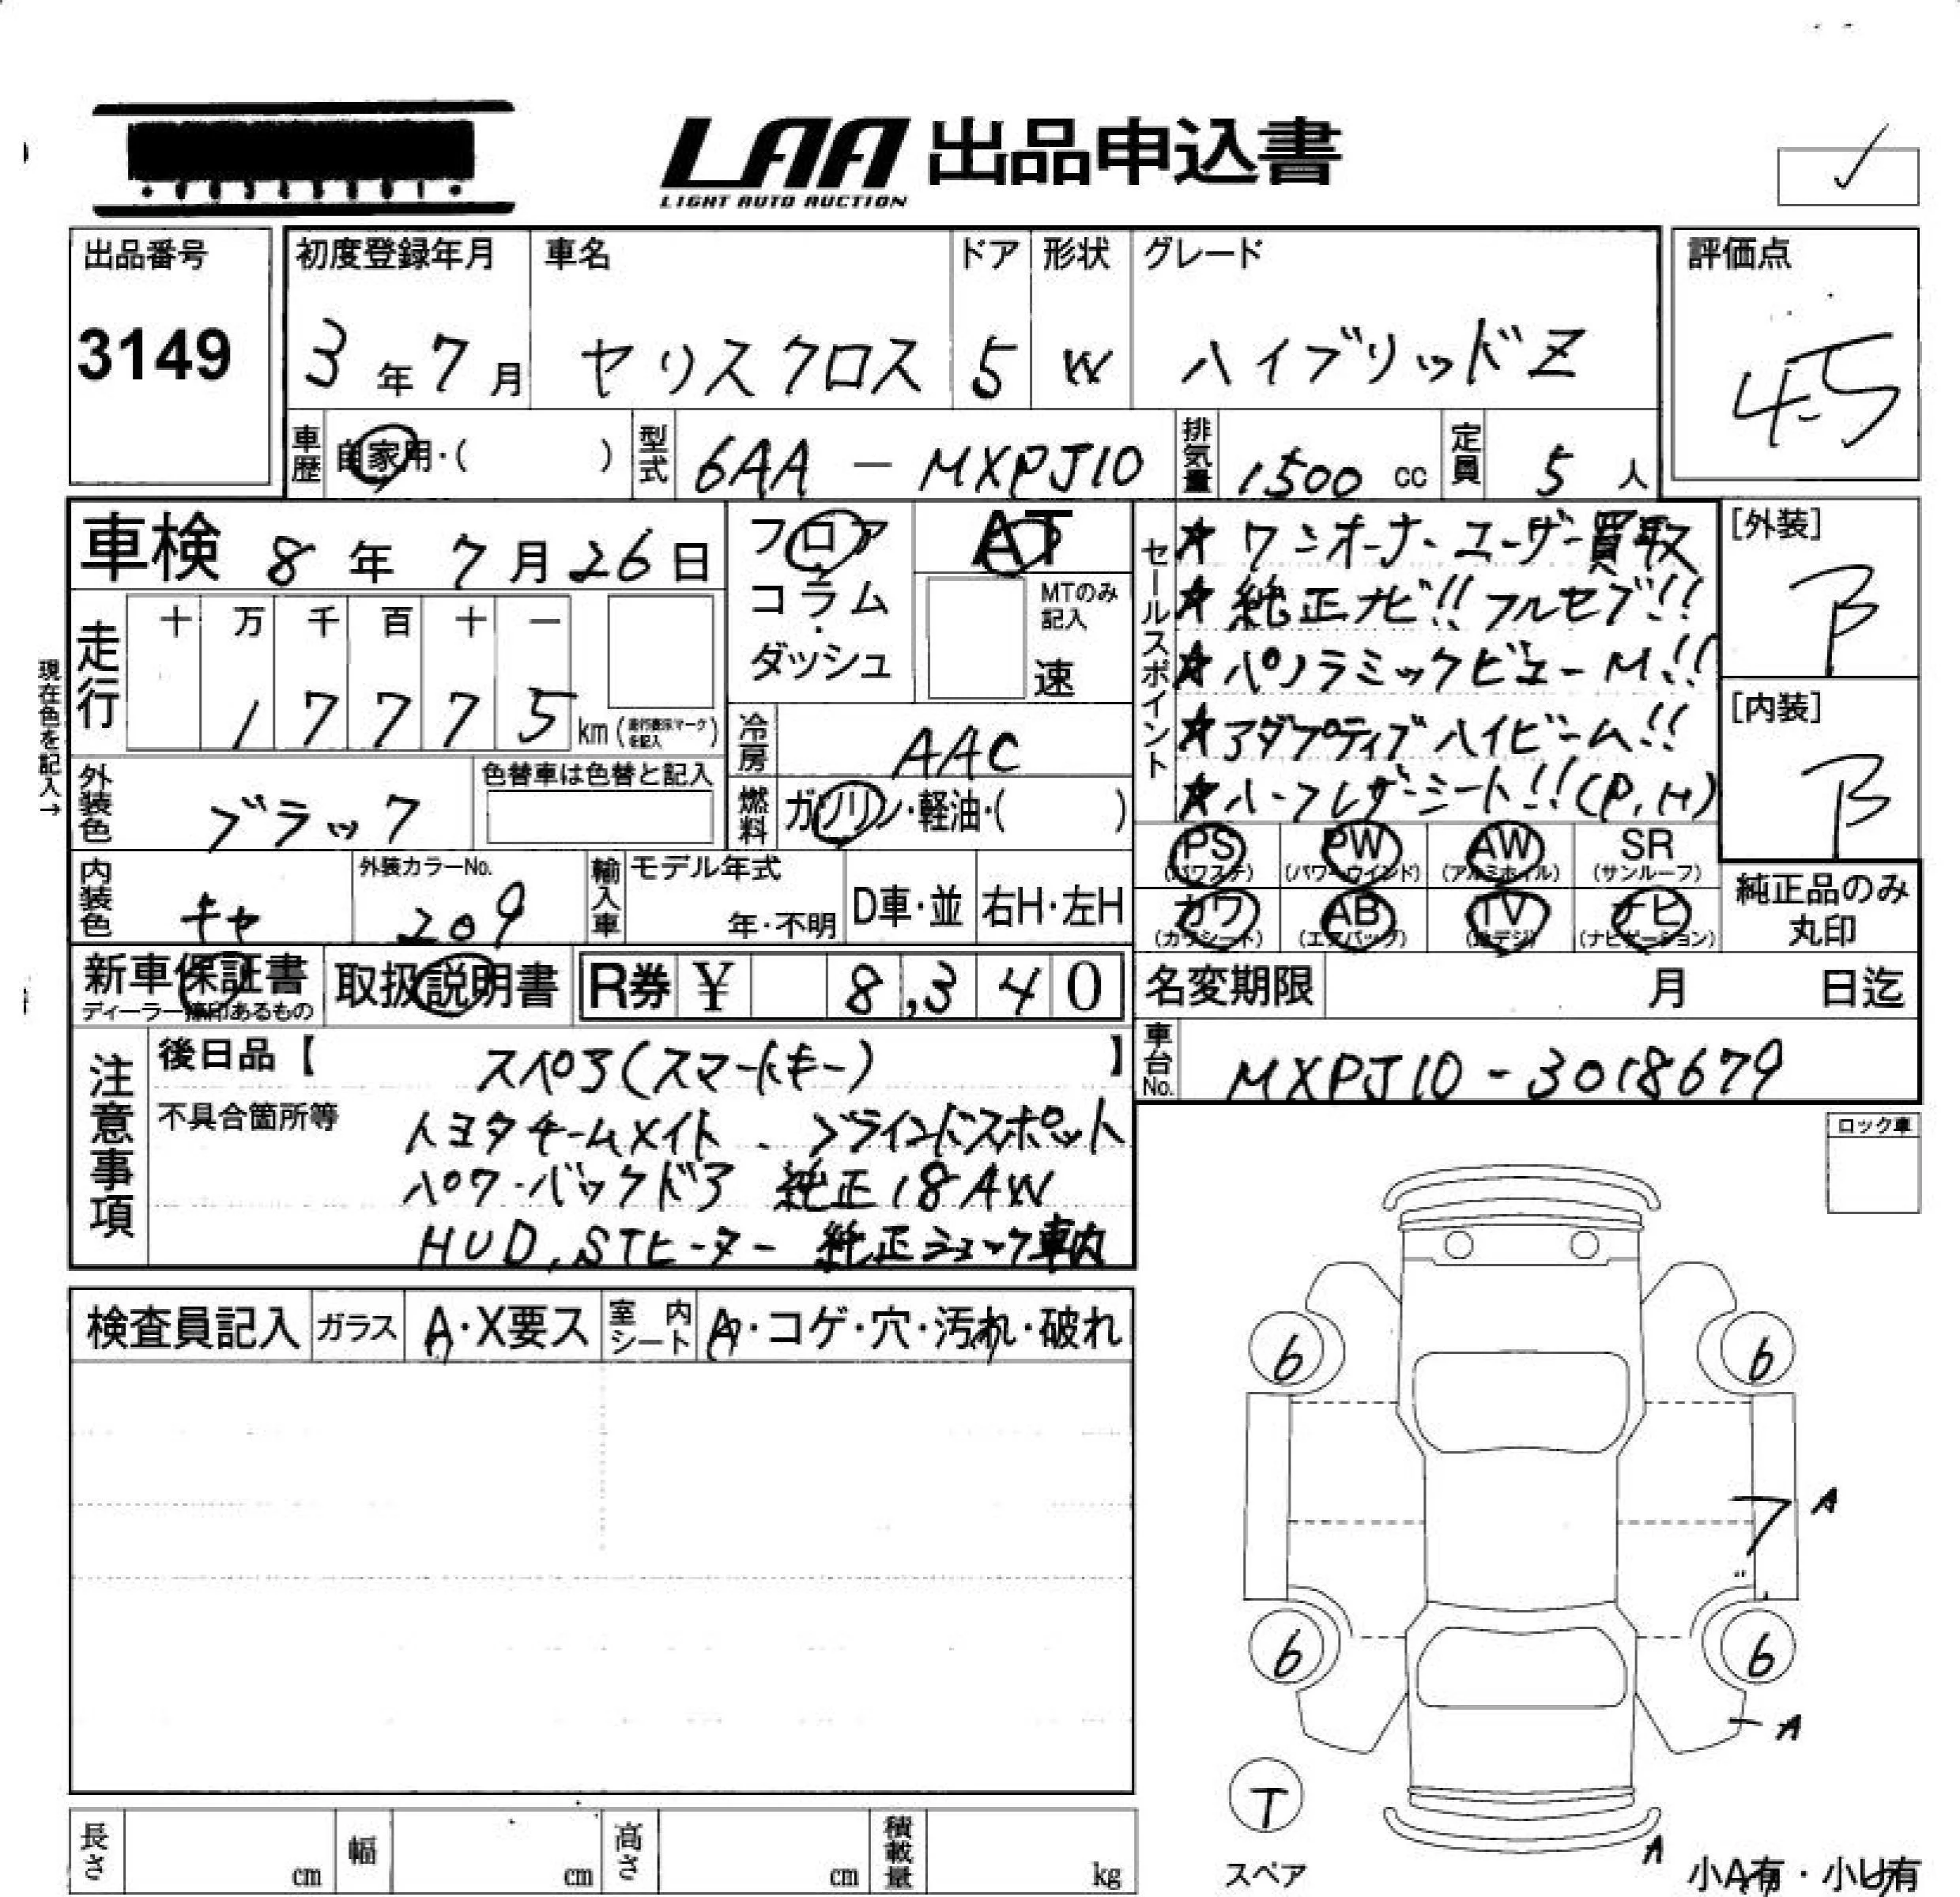 LAA 出品申込書
LIGHT AUTO AUCTION
出品番号
3149
初度登録年月
3年7月
車名
セリスクロス
ドア
5
形状
W
グレード
ハイブリッドZ
評価点
4.5
車歴
自家用・( )
型式
6AA - MXPJ10
排気量
1500 cc
定員
5人
車検 8年7月26日
フロア
コラム
・
ダッシュ
AT
MTのみ記入
速
走行
十 万 千 百 十 一
1 7 7 7 5 km(走行表示マークを記入)
現在色を記入→
冷房
AAC
燃料
ガソリン・軽油・( )
外装色
ブラック
色替車は色替と記入
内装色
キャ
外装カラーNo.
209
輸入車
モデル年式
年・不明
D車・並
右H・左H
セールスポイント
★ワンオーナーユーザー買取
★純正ナビ!!フルセブ!!
★パノラミックビューM!!
★アダプティブハイビーム!!
★ハーフレザーシート!!(P,H)
[外装]
B
[内装]
B
PS
(パワステ)
PW
(パワーウインド)
AW
(アルミホイル)
SR
(サンルーフ)
カワ
(カワシート)
AB
(エアバッグ)
TV
(地デジ)
ナビ
(ナビゲーション)
純正品のみ
丸印
新車保証書
ディーラー捺印あるもの
取扱説明書
R券 ¥ 8,340
名変期限 月 日迄
車台No.
MXPJ10-3018679
注意事項
後日品【 スペア(スマートキー) 】
不具合箇所等
トヨタチームメイト、ブラインドスポット
パワーバックドア 純正18AW
HUD,STヒーター 純正ショック車内
ロック車
検査員記入
ガラス
A・X要ス
室内シート
A・コゲ・穴・汚れ・破れ
6
6
7 A
6
6
A
T
スペア
A
小A有・小U有
長さ cm
幅 cm
高さ cm
積載量 kg